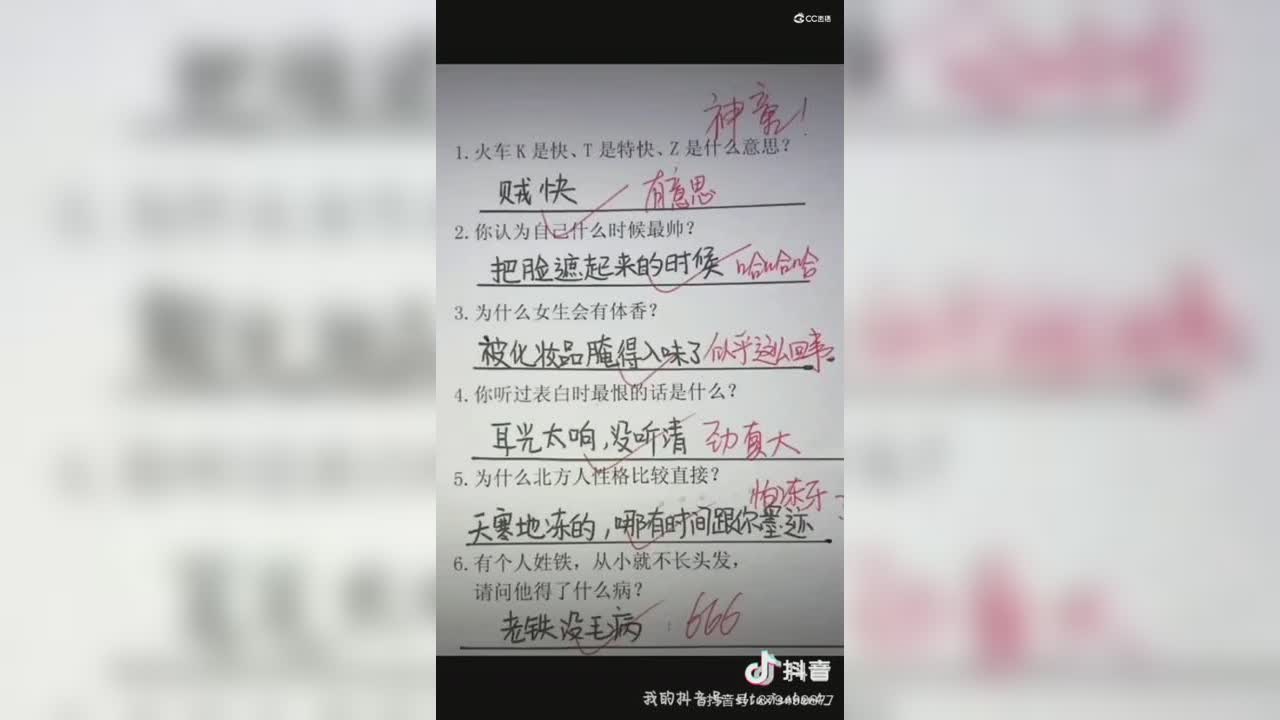 CC
神童!
1. 火车 K 是快、T 是特快、Z 是什么意思?
贼快 有意思
2. 你认为自己什么时候最帅?
把脸遮起来的时候 哈哈哈
3. 为什么女生会有体香?
被化妆品腌得入味了 似乎这么回事
4. 你听过表白时最恨的话是什么?
耳光太响,没听清 劲真大
5. 为什么北方人性格比较直接?
怕冻牙
天寒地冻的,哪有时间跟你墨迹
6. 有个人姓铁,从小就不长头发,
请问他得了什么病?
老铁没毛病 666
抖音
我的抖音号